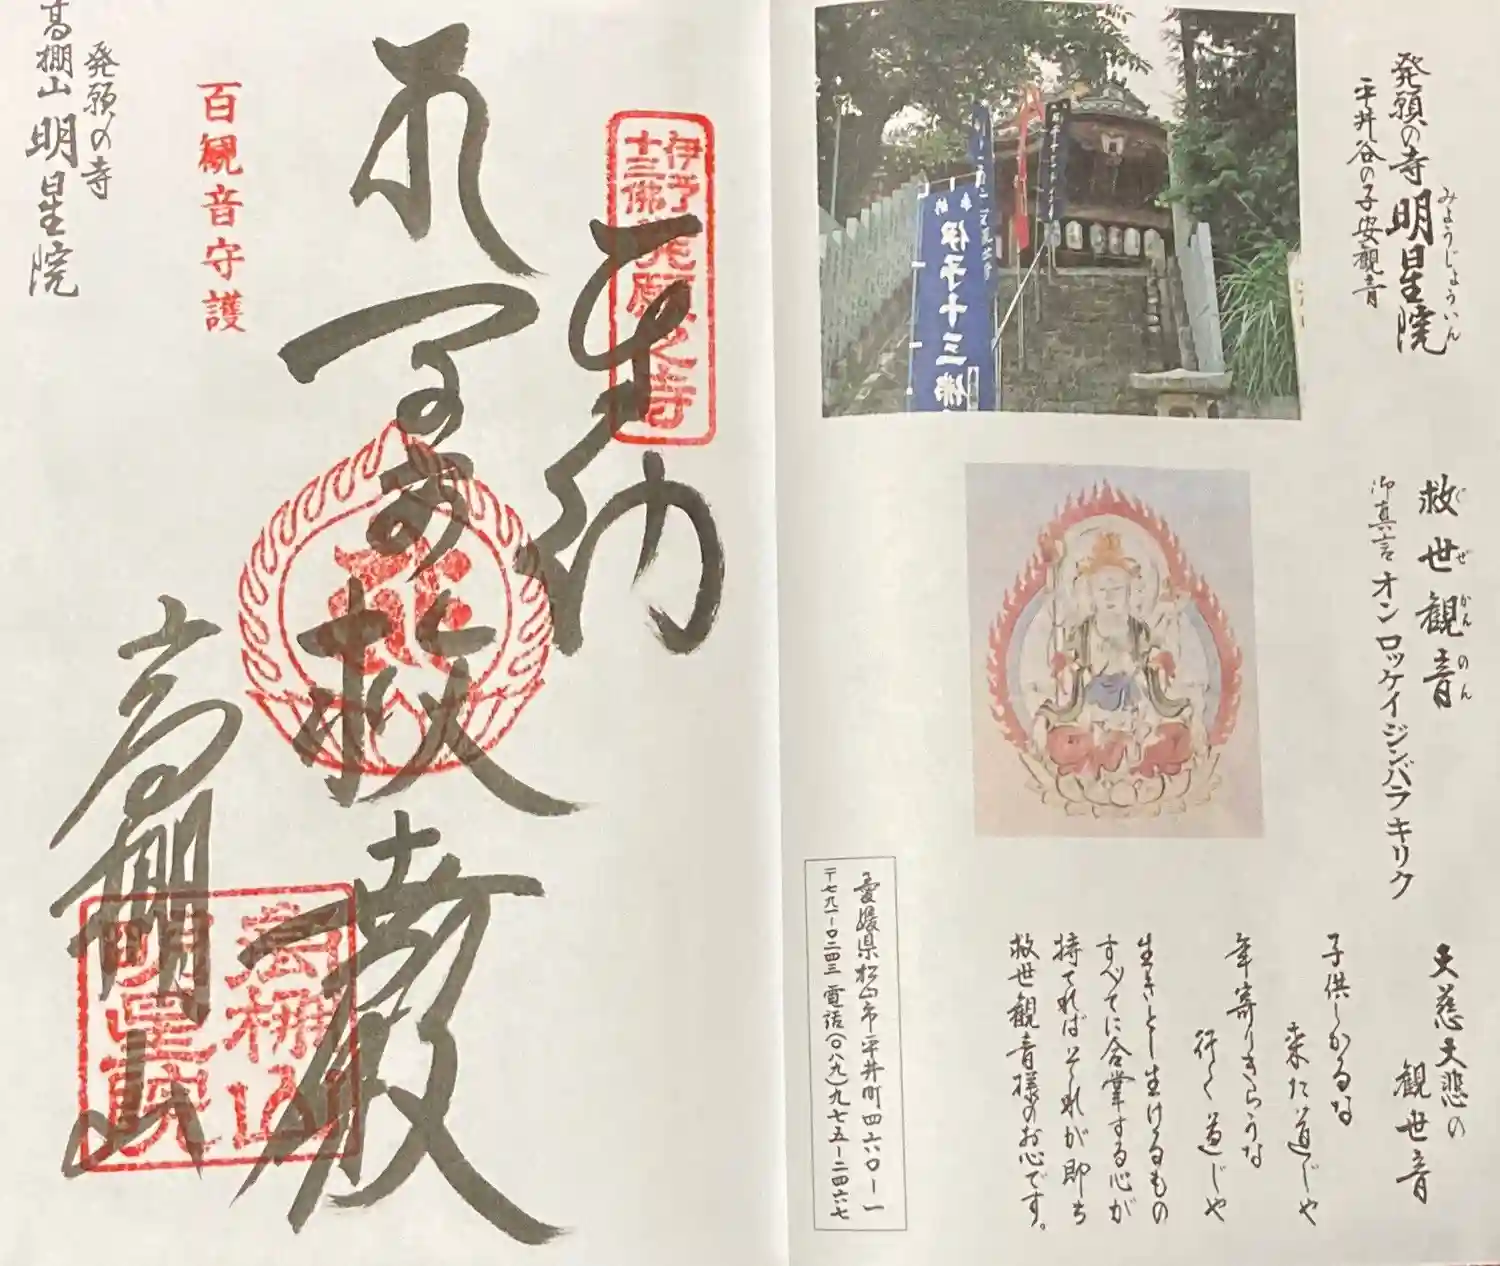 発願の寺 明星院
みょうじょういん
平井谷の子安観音
伊予十三佛
救世観音
ぐぜかんのん
御真言 オン ロッケイジンバラ キリク
大慈大悲の
観世音
子供しかるな
来た道じゃ
年寄りきらうな
行く道じゃ
生きとし生けるもの
すべてに合掌する心が
持てればそれが即ち
救世観音様のお心です。
愛媛県松山市平井町四六〇ー一
〒七九一ー〇二四三 電話(〇八九)九七五ー二四六七
伊予十三佛発願之寺
奉納
救世殿
高棚山
高棚山明星院
百観音守護
発願の寺
高棚山 明星院